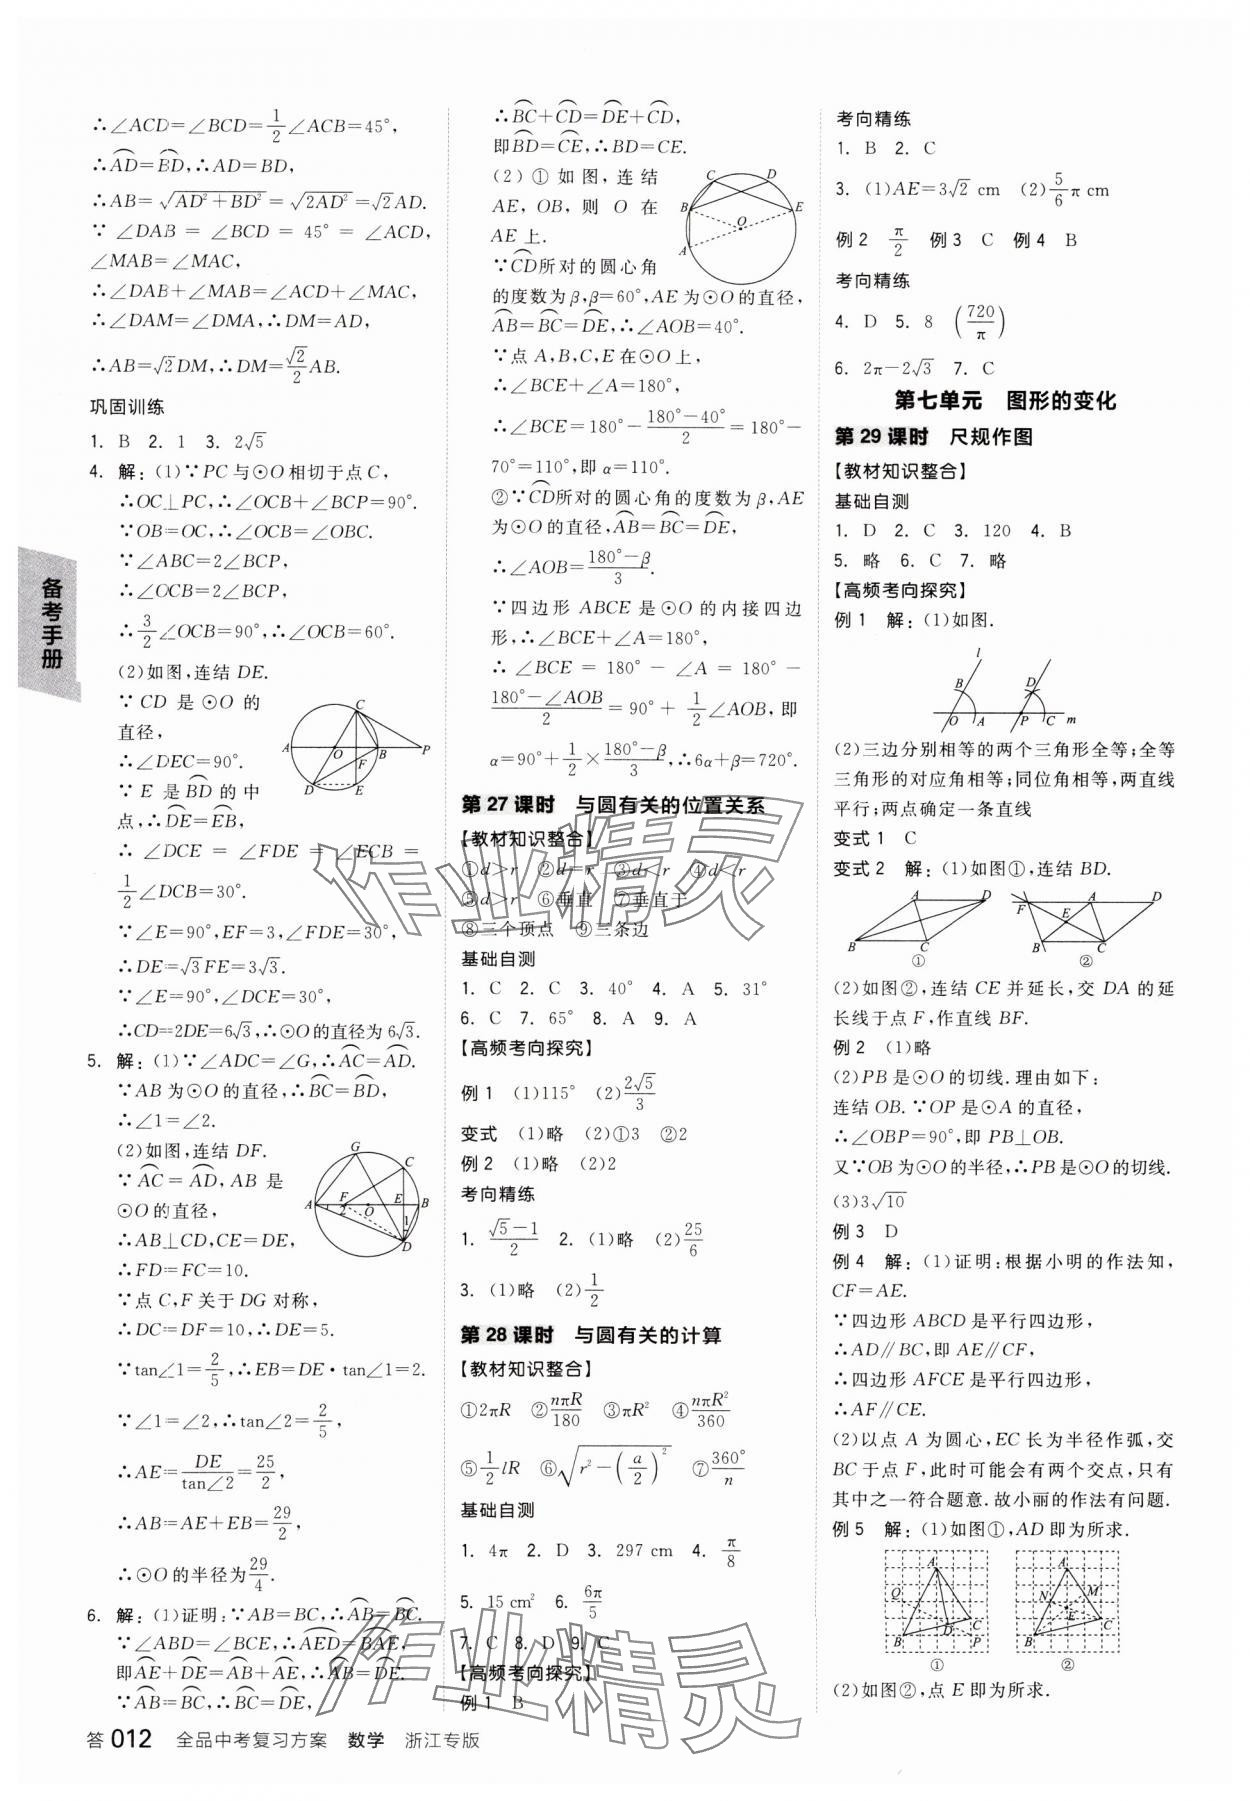 ∴∠ACD=∠BCD=1/2∠ACB=45°,
∴⌒AD=⌒BD,∴AD=BD,
∴AB=√(AD²+BD²)=√(2AD²)=√2AD.
∵∠DAB=∠BCD=45°=∠ACD,
∠MAB=∠MAC,
∴∠DAB+∠MAB=∠ACD+∠MAC,
∴∠DAM=∠DMA,∴DM=AD,
∴AB=√2DM,∴DM=√2/2AB.
巩固训练
1. B 2. 1 3. 2√5
4. 解:(1)∵PC与⊙O相切于点C,
∴OC⊥PC,∴∠OCB+∠BCP=90°.
∵OB=OC,∴∠OCB=∠OBC.
∵∠ABC=2∠BCP,
∴∠OCB=2∠BCP,
∴3/2∠OCB=90°,∴∠OCB=60°.
(2)如图,连结DE.
∵CD是⊙O的
直径,
∴∠DEC=90°.
∵E是⌒BD的中
点,∴⌒DE=⌒EB,
∴∠DCE=∠FDE=∠ECB=
1/2∠DCB=30°.
∵∠E=90°,EF=3,∠FDE=30°,
∴DE=√3FE=3√3.
∵∠E=90°,∠DCE=30°,
∴CD=2DE=6√3,∴⊙O的直径为6√3.
5. 解:(1)∵∠ADC=∠G,∴⌒AC=⌒AD.
∵AB为⊙O的直径,∴⌒BC=⌒BD,
∴∠1=∠2.
(2)如图,连结DF.
∵⌒AC=⌒AD,AB是
⊙O的直径,
∴AB⊥CD,CE=DE,
∴FD=FC=10.
∵点C,F关于DG对称,
∴DC=DF=10,∴DE=5.
∵tan∠1=2/5,∴EB=DE·tan∠1=2.
∵∠1=∠2,∴tan∠2=2/5,
∴AE=DE/tan∠2=25/2,
∴AB=AE+EB=29/2,
∴⊙O的半径为29/4.
6. 解:(1)证明:∵AB=BC,∴⌒AB=⌒BC.
∵∠ABD=∠BCE,∴⌒AED=⌒BAE,
即⌒AE+⌒DE=⌒AB+⌒AE,∴⌒AB=⌒DE.
∵⌒AB=⌒BC,∴⌒BC=⌒DE,
∴⌒BC+⌒CD=⌒DE+⌒CD,
即⌒BD=⌒CE,∴BD=CE.
(2)①如图,连结
AE,OB,则O在
AE上.
∵⌒CD所对的圆心角
的度数为β,β=60°,AE为⊙O的直径,
⌒AB=⌒BC=⌒DE,∴∠AOB=40°.
∵点A,B,C,E在⊙O上,
∴∠BCE+∠A=180°,
∴∠BCE=180°-(180°-40°)/2=180°-
70°=110°,即α=110°.
②∵⌒CD所对的圆心角的度数为β,AE
为⊙O的直径,⌒AB=⌒BC=⌒DE,
∴∠AOB=(180°-β)/3.
∵四边形ABCE是⊙O的内接四边
形,∴∠BCE+∠A=180°,
∴∠BCE=180°-∠A=180°-
(180°-∠AOB)/2=90°+1/2∠AOB,即
α=90°+1/2×(180°-β)/3,∴6α+β=720°.
第27课时 与圆有关的位置关系
【教材知识整合】
①d>r ②d=r ③d<r ④d<r
⑤d>r ⑥垂直 ⑦垂直于
⑧三个顶点 ⑨三条边
基础自测
1. C 2. C 3. 40° 4. A 5. 31°
6. C 7. 65° 8. A 9. A
【高频考向探究】
例1 (1)115° (2)2√5/3
变式 (1)略 (2)①3 ②2
例2 (1)略 (2)2
考向精练
1. (√5-1)/2 2. (1)略 (2)25/6
3. (1)略 (2)1/2
第28课时 与圆有关的计算
【教材知识整合】
①2πR ②nπR/180 ③πR² ④nπR²/360
⑤1/2lR ⑥√(r²-(a/2)²) ⑦360°/n
基础自测
1. 4π 2. D 3. 297 cm 4. π/8
5. 15 cm² 6. 6π/5
7. C 8. D 9. C
【高频考向探究】
例1 B
考向精练
1. B 2. C
3. (1)AE=3√2 cm (2)5/6π cm
例2 π/2 例3 C 例4 B
考向精练
4. D 5. 8 (720/π)
6. 2π-2√3 7. C
第七单元 图形的变化
第29课时 尺规作图
【教材知识整合】
基础自测
1. D 2. C 3. 120 4. B
5. 略 6. C 7. 略
【高频考向探究】
例1 解:(1)如图.
(2)三边分别相等的两个三角形全等;全等
三角形的对应角相等;同位角相等,两直线
平行;两点确定一条直线
变式1 C
变式2 解:(1)如图①,连结BD.
① ②
(2)如图②,连结CE并延长,交DA的延
长线于点F,作直线BF.
例2 (1)略
(2)PB是⊙O的切线.理由如下:
连结OB.∵OP是⊙A的直径,
∴∠OBP=90°,即PB⊥OB.
又∵OB为⊙O的半径,∴PB是⊙O的切线.
(3)3√10
例3 D
例4 解:(1)证明:根据小明的作法知,
CF=AE.
∵四边形ABCD是平行四边形,
∴AD∥BC,即AE∥CF,
∴四边形AFCE是平行四边形,
∴AF∥CE.
(2)以点A为圆心,EC长为半径作弧,交
BC于点F,此时可能会有两个交点,只有
其中之一符合题意.故小丽的作法有问题.
例5 解:(1)如图①,AD即为所求.
① ②
(2)如图②,点E即为所求.
备考手册
答 012 全品中考复习方案 数学 浙江专版
作业精灵
作业精灵